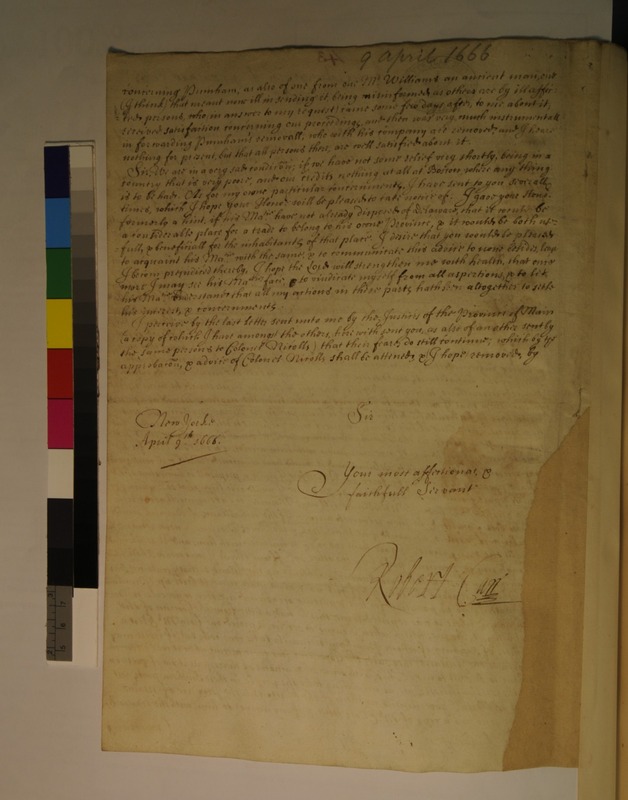 9 April 1666
concerning Pumham, as also of one from one Mr Williams an ancient man, one
(I think) that meant noe ill in sending it, being misinformed as others are by ill affec-
ted persons, who in answer to my request came some few days after to mee about it,
received satisfaction concerning our proceedings, and then was very much instrumentall
in forwarding Pumhams removall, who with his company are removed and I heare
nothing for present, but that all persons there, are well satisfied about it.
Sir, We are in a very sad condicon, if we have not some relief very shortly, being in a
country that is very poore, and our credits nothing at all at Boston where any thing
is to be had. As for my owne particular concernments, I have sent to you severall
times, which I hope your Honor will be pleased to take notice of. I gave your Honor
formerly a hint, if his Matie have not already disposed of Delaware, that it would be
a considerable place for a trade to belong to his owne Province, & it would be both use-
full, & beneficiall for the inhabitants of that place. I desire that you would be pleased
to acquaint his Matie with the same, & to communicate this advice to your
I being permitted thereby, I hope the Lord will strengthen mee with health, that once
more I may see his Maties face, & to vindicate myself from all aspersions, & to let
his Matie understand that all my actions in these parts hath been altogether to
his interest, & concernments.
I perceive by the last letter sent unto mee by the Justices of the Province of Main
(a copy of which I have amongst the others, herewith sent you, as also of another sent by
the same persons to Colonel Nicolls) that their feares do still continue, which by
approbacon, & advice of Colonel Nicolls shall be attended, & I hope removed by
Sir
New Yorke
April 9th 1666.
Your most affectionate &
faithfull Servant
Robert Carr